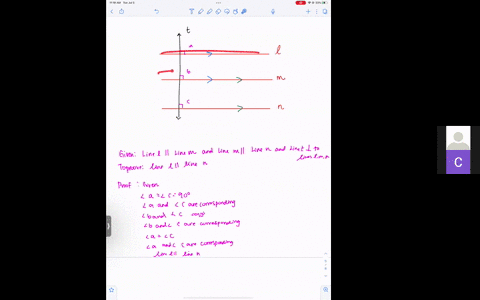 t
a
l
b
m
c
n
Given: Line l || Line m and line m || Line n and line t ⊥ to
line l,m,n
To prove: line l || line n
Proof: Given
∠a = ∠c = 90°
∠a and ∠c are corresponding
∠b and ∠c
∠b and ∠c are corresponding
∠a = ∠c
∠a and ∠c are corresponding
line n
C